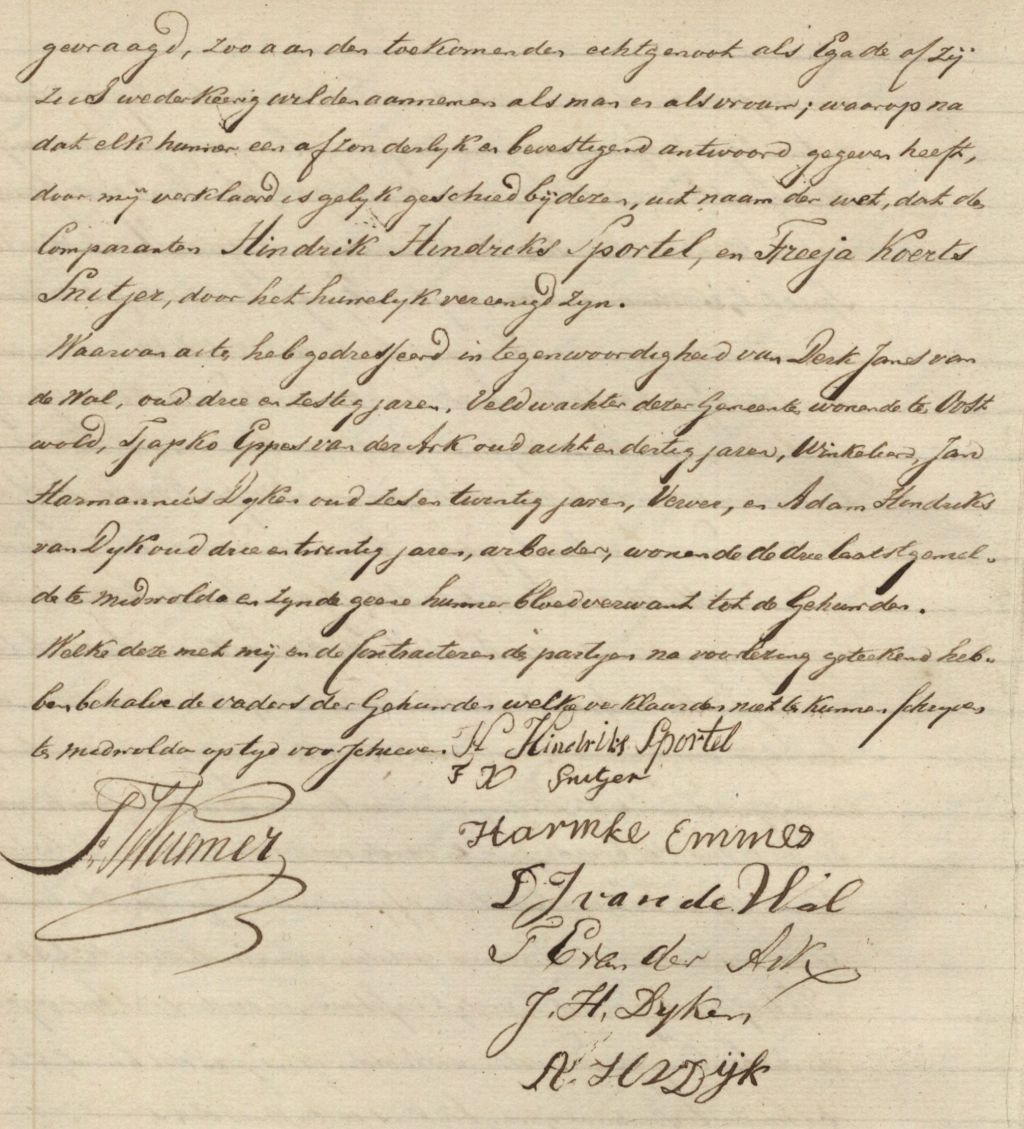 gevraagd, zoo aan den toekomenden echtgenoot als Egade of zij
zich wederkeerig wilden aannemen als man en als vrouw; waarop na
dat elk hunner een afzonderlyk en bevestigend antwoord gegeven heeft,
door mij verklaard is gelyk geschied bij dezen, uit naam der wet, dat de
Comparanten Hindrik Hindriks Sportel, en Freeja Koerts
Snitjer, door het huwelyk vereenigd zyn.
Waarvan acte heb gedresseerd in tegenwoordigheid van Derk Jans van
de Wal, oud drie en zestig jaren, Veldwachter dezer Gemeente, wonende te Oost
wold, Tjapko Eppes van der Ark oud acht en dertig jaren, Winkelier, Jan
Harmannus Dyken oud zes en twintig jaren, Verver, en Adam Hindriks
van Dyk oud drie en twintig jaren, arbeider, wonende de drie laatstgemel-
de te midwolda en zynde geene hunner bloedverwant tot de Gehuwden.
Welke deze met mij en de Contracterende partyen na voorlezing geteekend heb-
ben behalve de vaders der Gehuwden welke verklaarden niet te kunnen schryven
te midwolda op tyd voorschreven H Hindriks Sportel
F K Snitjer
Harmke Emmes
D J van de Wal
T E van der Ark
J. H. Dyken
A. H v Dijk